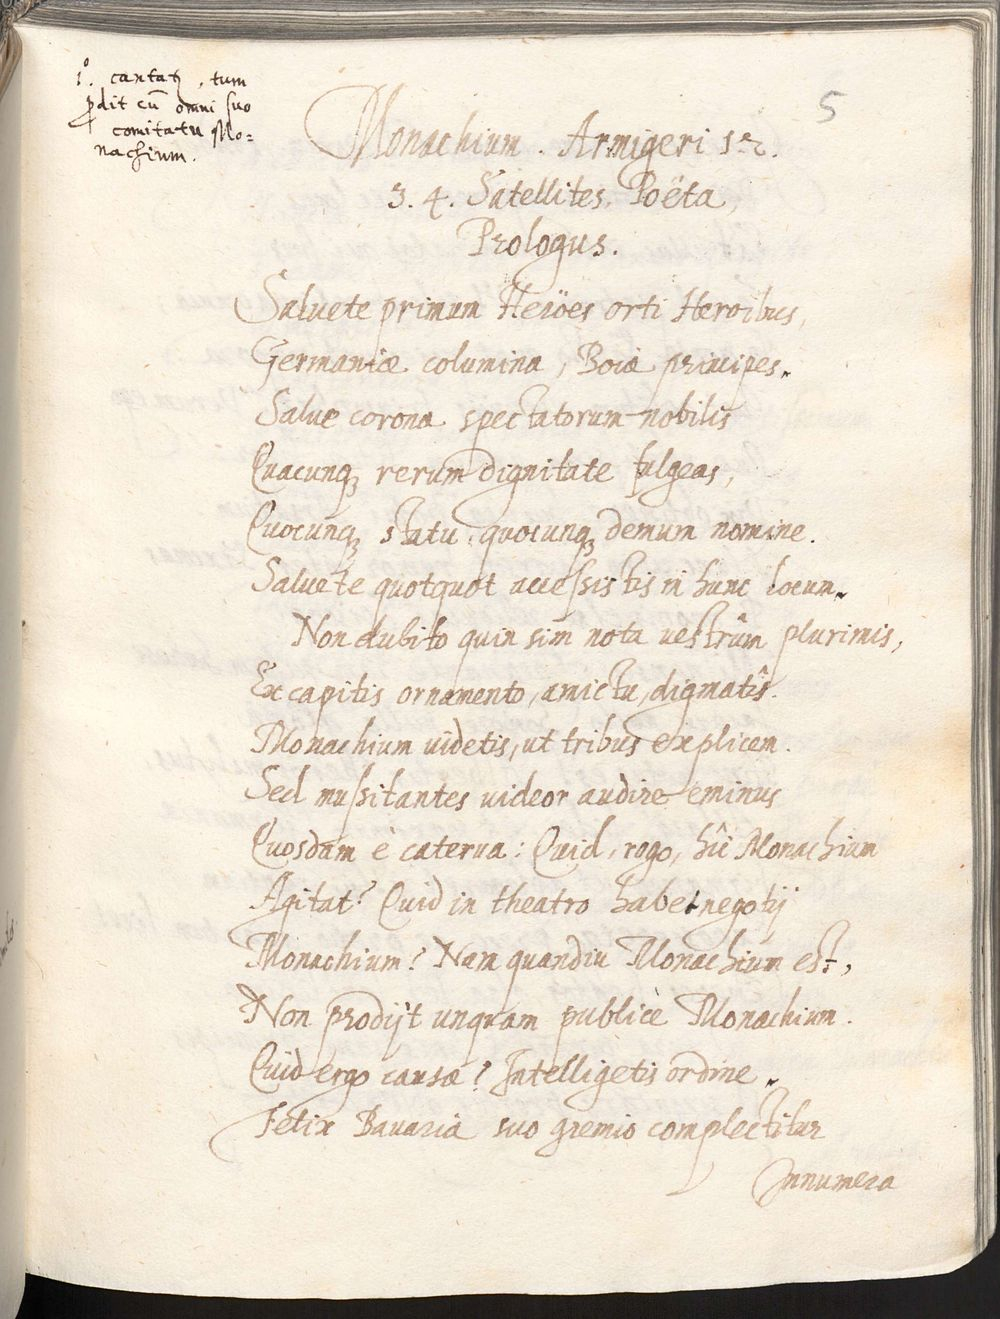 1º. cantatʒ, tum
ꝓdit cū omni suo
comitatu Mo=
nachium.
5
Monachium. Armigeri 1. 2.
3. 4. Satellites. Poëta,
Prologus.
Saluete primum Heroës orti Heroibus,
Germaniæ columina, Boiæ principes.
Salue corona spectatorum nobilis
Quacunqꝫ rerum dignitate fulgeas,
Quocunqꝫ statu, quocunqꝫ demum nomine.
Saluete quotquot accessistis in hunc locum.
Non dubito quin sim nota uestrûm plurimis,
Ex capitis ornamento, amictu, digmatîs.
Monachium uidetis, ut tribus explicem.
Sed mussitantes uideor audire eminus
Quosdam è caterua: Quid, rogo, hîc Monachium
Agitat? Quid in theatro habet negotij
Monachium? Nam quandiu Monachium est,
Non prodijt unquam publicè Monachium.
Quid ergo causæ? Intelligetis ordine.
Felix Bauaria suo gremio complectitur
Innumera